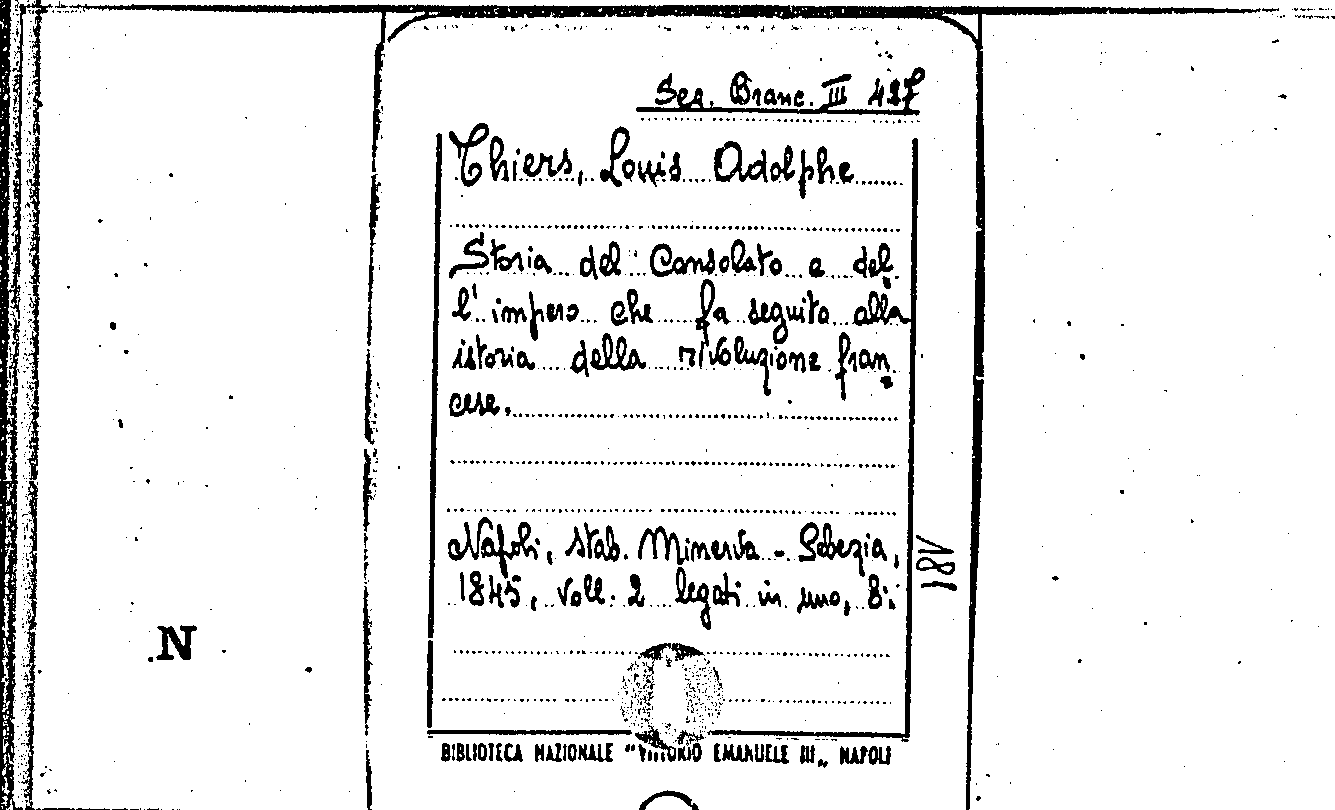 Ses. Branc. III 427
Thiers, Louis Adolphe
Storia del Consolato e del
l'impero che fa seguito alla
istoria della rivoluzione fran
cese.
Napoli, stab. Minerva - Sebezia,
1845, voll. 2 legati in uno, 8:
181
N
BIBLIOTECA NAZIONALE "VITTORIO EMANUELE III„ NAPOLI